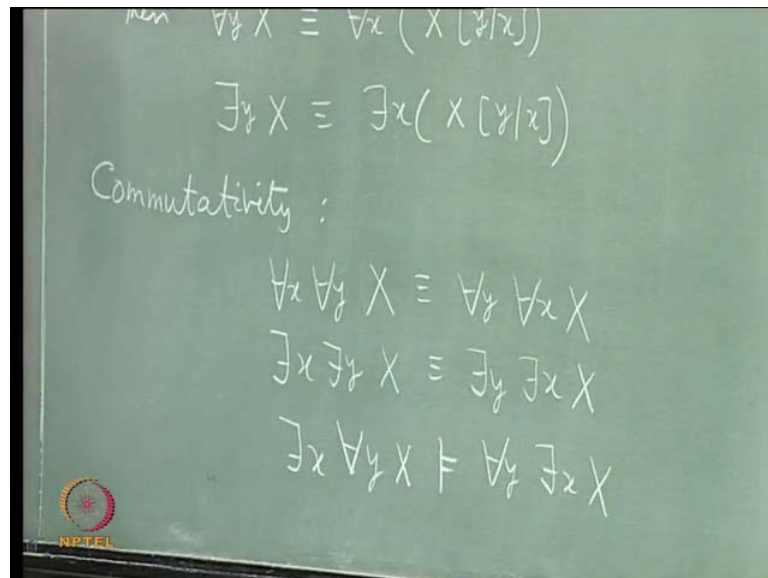 then ∀y X ≡ ∀x ( X [y/x])
∃y X ≡ ∃x( X [y/x])
Commutativity :
∀x ∀y X ≡ ∀y ∀x X
∃x ∃y X ≡ ∃y ∃x X
∃x ∀y X ⊨ ∀y ∃x X
NPTEL